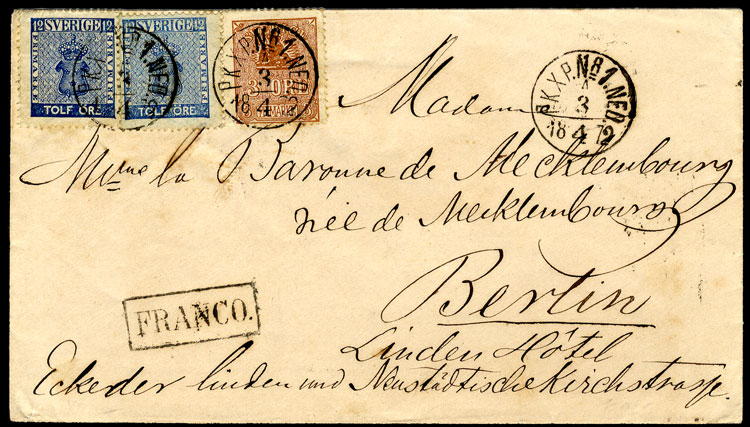 12 SVERIGE 12
FRIMÄRKE
TOLF ÖRE
12 SVERIGE 12
FRIMÄRKE
TOLF ÖRE
P.K.X.P.Nº1.NED.
3
18 4 72
P.K.X.P.Nº1.NED.
3
18 4 72
Madame
Mme la Baronne de Mecklembourg
née de Mecklembourg
Berlin
Linden Hôtel
Ecke der linden und Neustädtische Kirchstrasse.
FRANCO.